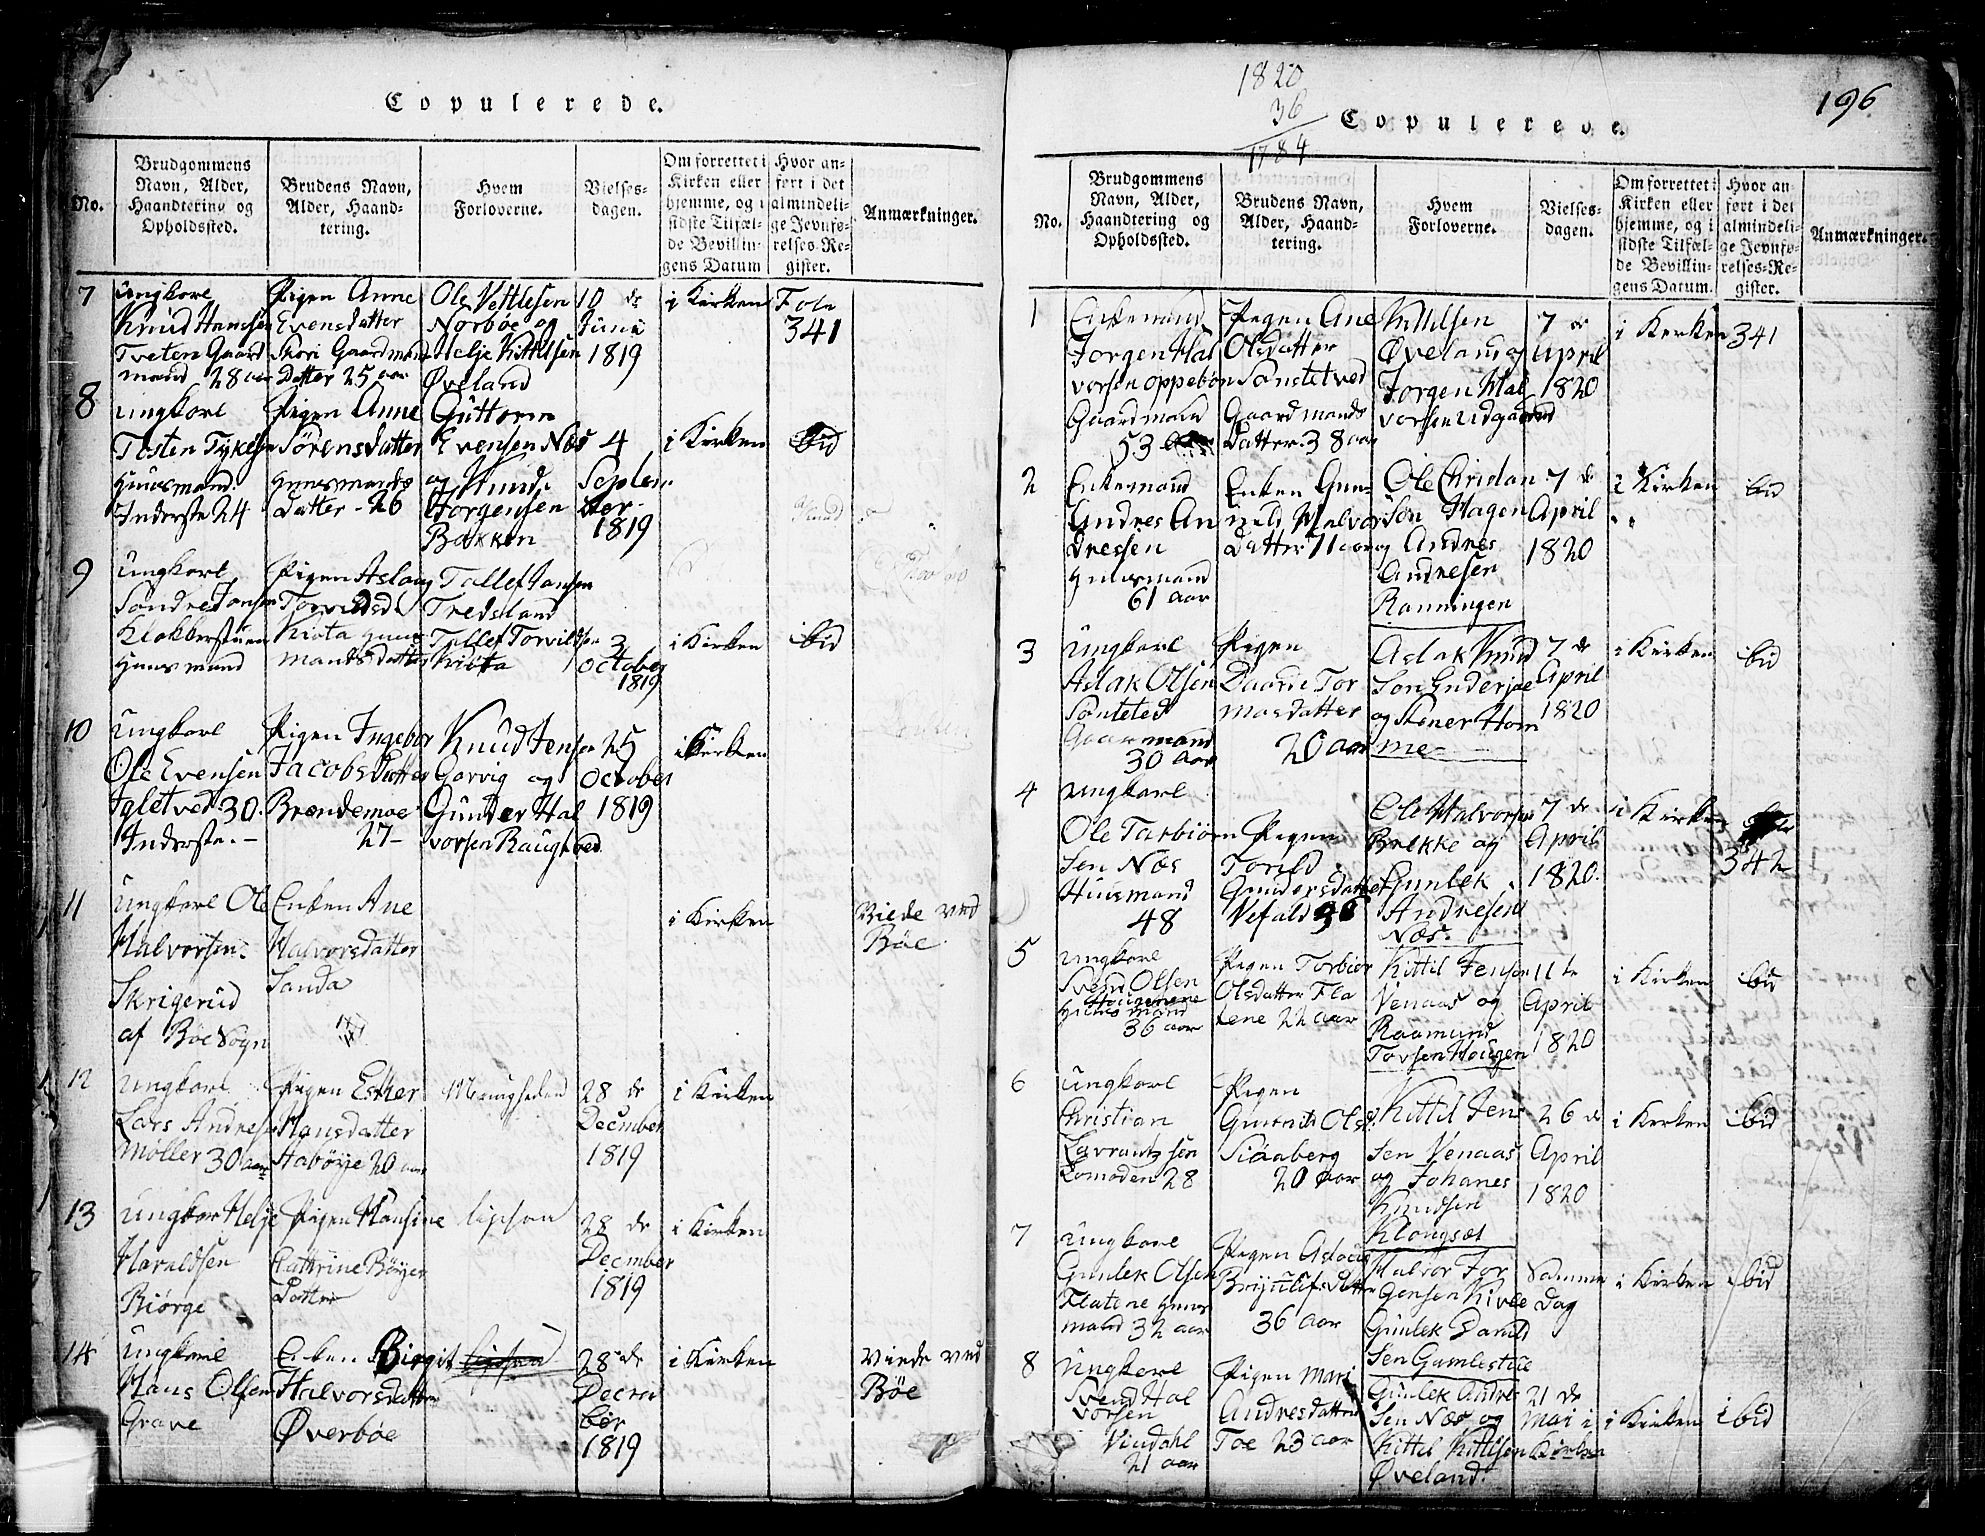 Copulerede.
No.
Brudgommens
Navn, Alder,
Haandtering og
Opholdssted.
Brudens Navn,
Alder, Haand-
tering.
Hvem
Forloverne.
Vielses-
dagen.
Om forrettet i
Kirken eller
hjemme, og i
sidste Tilfæl-
de Bevillin-
gens Datum
Hvor an-
ført i det
almindeli-
ge Jevnfø-
relses-Re-
gister.
Anmærkninger.
7
Ungkarl
Knud Hansen
Tveten Gaard
mand 28 aar
Pigen Anne
Evensdatter
Skori Gaardmand
Datter 25 aar
Ole Vettlesen
Norbøe og
Helje Kittilsen
Øveland
10 de
Juni
1819
i Kirken
Fole
341
8
Ungkarl
Tosten Tykesen
Huusmand
Inderste 24
Pigen Anne
Sørensdatter
Huusmands
Datter - 26
Guttorm
Evensen Næs
og Knud
Jorgensen
Bakken
4
Septem
ber
1819
i Kirken
ibid
9
Ungkarl
Søndre Jonsen
Klokkerstuen
Huusmand
Pigen Aslaug
Torvildsd.
Kiøta Huus
mandsdatter
Tollef Jansen
Tredsland
Tollef Torvildsen
Kiøta
3
October
1819
i Kirken
ibid
10
Ungkarl
Ole Evensen
Igletved 30.
Inderste. -
Pigen Ingebor
Jacobsdatter
Brendemoe
27 -
Knud Jensen
Garvig og
Gunder Hal
vorsen Raugtved
25
October
1819
i Kirken
11
Ungkarl Ole
Halvorsen
Skrigerud
af Bøe Sogn
Enken Ane
Halvorsdatter
Sanda
i Kirken
Viede ved
Bøe
12
Ungkarl
Lars Andresen
Møller 30 aar
Pigen Esther
Hansdatter
Stabøye 20 aar
Menigheden
28 de
December
1819
i Kirken
13
Ungkar Helje
Haraldsen
Biørge
Pigen Hansine
Cathrine Børges
Datter
28 de
December
1819
i Kirken
14
Ungkarl
Hans Olsen
Grave
Enken Birgit
Halvorsdatter
Øverbøe
28 de
Decem
ber
1819
i Kirken
Viede ved
Bøe
1820
36
1784
Copulerede.
196
No.
Brudgommens
Navn, Alder,
Haandtering og
Opholdssted.
Brudens Navn,
Alder, Haand-
tering.
Hvem
Forloverne.
Vielses-
dagen.
Om forrettet i
Kirken eller
hjemme, og i
sidste Tilfæl-
de Bevillin-
gens Datum.
Hvor an-
ført i det
almindeli-
ge Jevnfø-
relses-Re-
gister.
Anmærkninger.
1
Enkemand
Jorgen Hal
vorsen oppebøn
Gaardmand
53
Pigen Ane
Olsdatter
Sønstetved
Gaardmands
Datter 38 aar
Kittilsen
Øveland og
Jorgen Hal
vorsen Udgaarden
7 de
April
1820
i Kirken
341
2
Enkemand
Andres An
dresen
Huusmand
61 aar
Enken Gun
nild Halvors
Datter 71 aar
Ole Christian
søn Hagen
og Andres
Andresen
Ranningen
7 de
April
1820
i Kirken
ibid
3
Ungkarl
Aslak Olsen
Sønteted
Gaarmand
30 aar
Pigen
Daarte Tor
mosdatter
20 aar
Aslak Knud
søn Enderjoe
og Stener Hom
me -
7 de
April
1820
i Kirken
ibid
4
Ungkarl
Ole Tarbiøren
sen Næs
Huusmand
48
Pigen
Torild
Gundersdatter
Vefald 36
Ole Halvorsen
Brekke og
Gunlek
Andresen
Næs.
7 de
April
1820.
i Kirken
342
5
Ungkarl
Svend Olsen
Hougenene
Huusmand
36 aar
Pigen Torbiør
Olsdatter Fla
tene 22 aar
Kittil Jensen
Venaas og
Raamund
Torsen Hougen
11 te
April
1820
i Kirken
ibid
6
Ungkarl
Christian
Lavrantz sen
Lomoden 28
Pigen
Gunnild Olsd.
Siaaberg
20 aar
Kittil Jen
sen Venaas
og Johanes
Knudsen
Klongset
26 de
April
1820
i Kirken
ibid
7
Ungkarl
Gunlek Olsen
Flatene Huus
mand 32 aar
Pigen Aslaug
Brynlifs Datter
36 aar
Halvor Jor
gensen Kivle
Gunlek Daniel
sen Gamlestue
Samme
Dag
i Kirken
ibid
8
Ungkarl
Svend Hal
vorsen
Vindahl
21 aar
Pigen Mari
Andresdatter
Toe 23 aar
Gunlek Andre
sen Næs og
Kittil Kittilsen
Øveland.
21 de
Mai i
Kirken
i Kirken
ibid